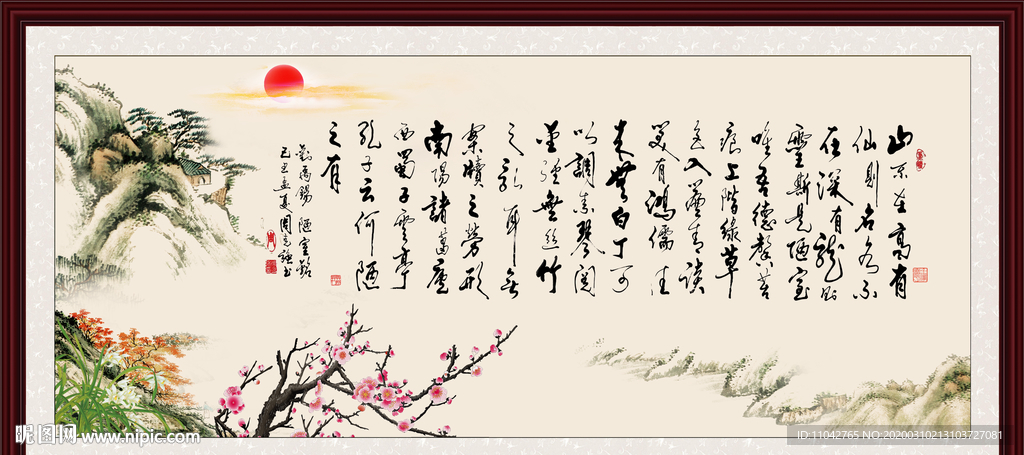 山不在高有
仙則名水不
在深有龍則
靈斯是陋室
唯吾德馨苔
痕上階綠草
色入簾青談
笑有鴻儒往
来無白丁可
以調素琴閱
金經無絲竹
之亂耳無
案牘之勞形
南陽諸葛廬
西蜀子雲亭
孔子云何陋
之有
劉禹錫 陋室銘
己丑孟夏周克強书
昵图网 www.nipic.com
ID:11042765 NO:20200310213103727081